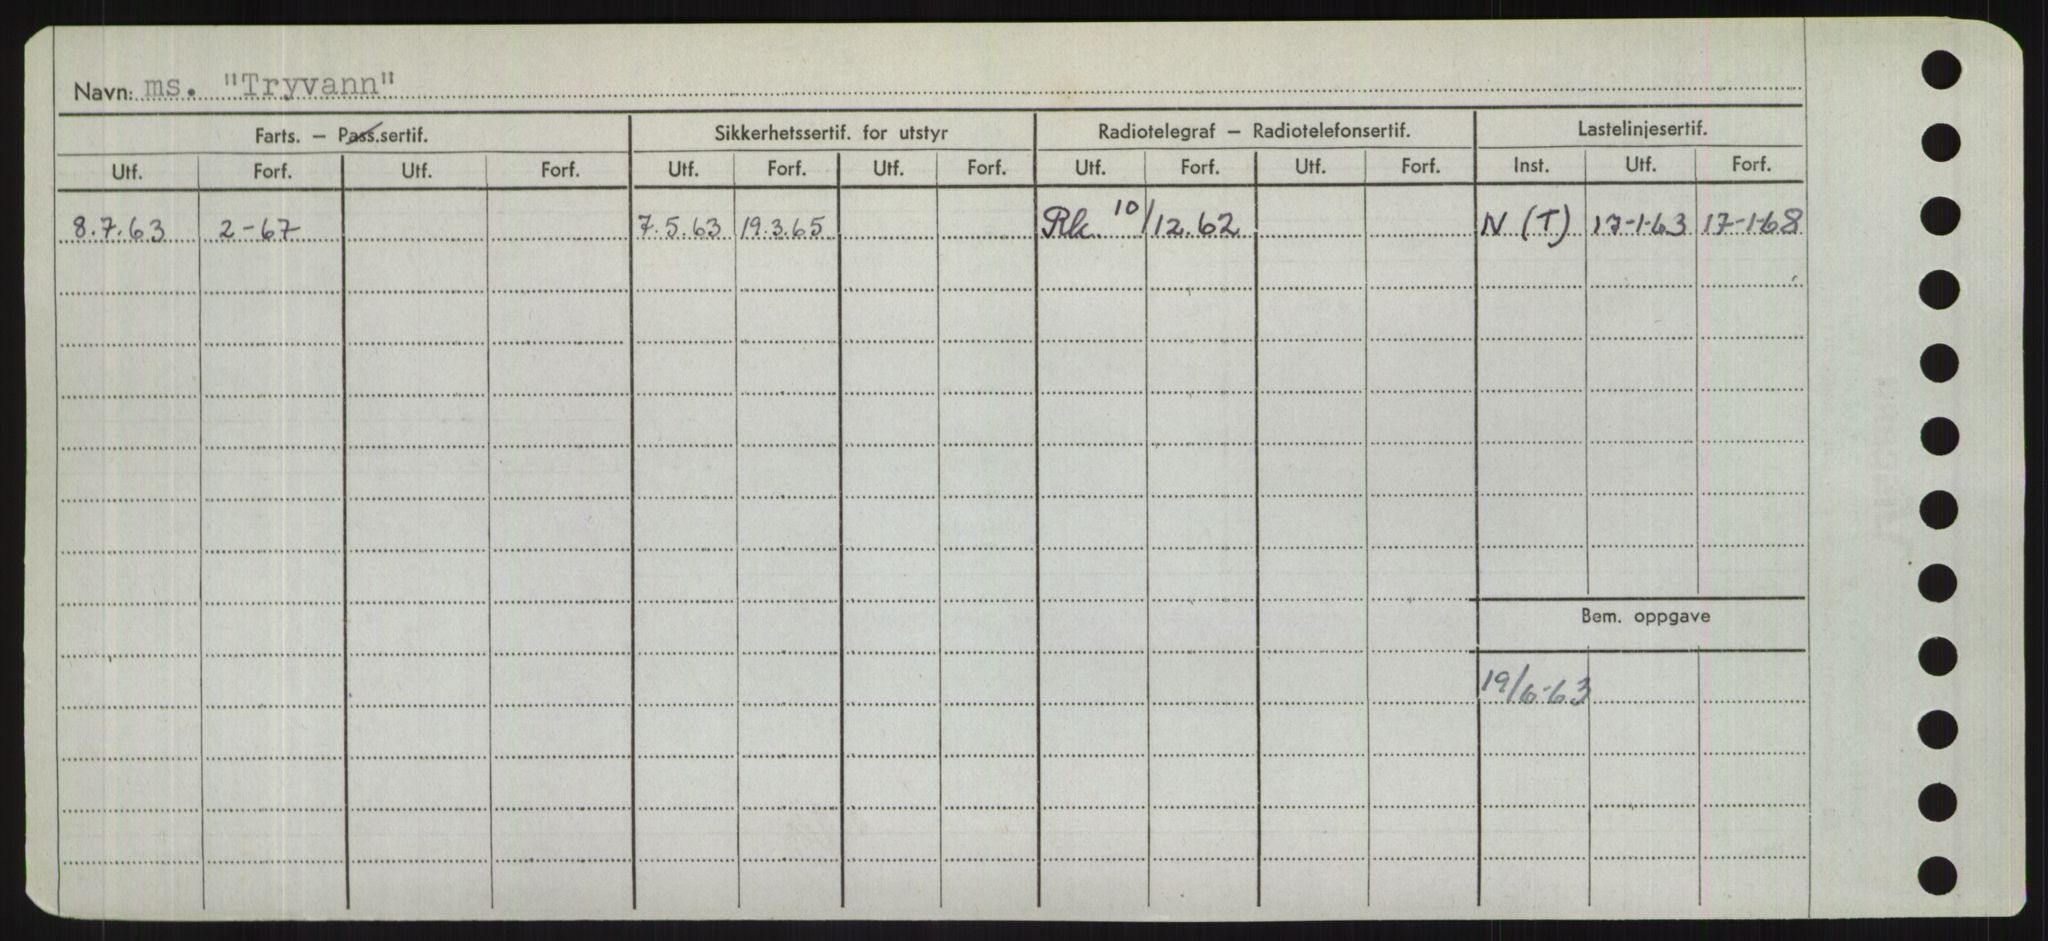 Navn: ms. "Tryvann"
Farts. – Pass.sertif. Sikkerhetssertif. for utstyr Radiotelegraf – Radiotelefonsertif. Lastelinjesertif.
Utf. Forf. Utf. Forf. Utf. Forf. Utf. Forf. Utf. Forf. Utf. Forf. Inst. Utf. Forf.
8.7.63 2-67 7.5.63 19.3.65 Rk. 10/12.62 N (T) 17-1-63 17-1-68
Bem. oppgave
19/6-63